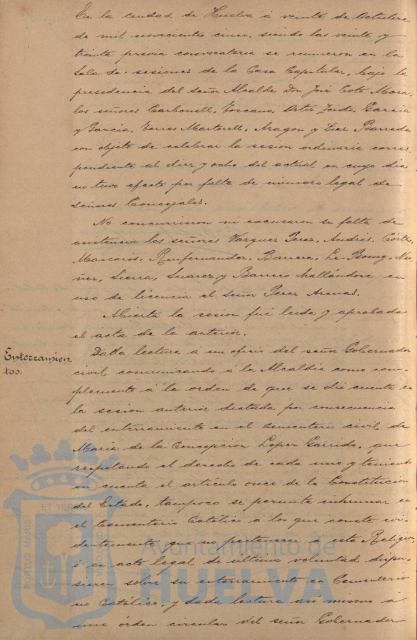 En la ciudad de Huelva á veinte de Octubre
de mil novecientos cinco, siendo las veinte y
treinta previa convocatoria se reunieron en la
Sala de sesiones de la Casa Capitular, bajo la
presidencia del señor Alcalde Don José Coto Mora
los señores Carbonell, Toscano, García
y García, Torres Martorell, Aragon y Parrado
con objeto de celebrar la sesion ordinaria corres
pondiente al diez y ocho del actual en cuyo dia
no tuvo efecto por falta de número legal de
señores Concejales.
No concurrieron ni excusaron su falta de
asistencia los señores Vazquez Perez, Cortés,
Barrera, Le-Bourg, Mu
ñoz, Sierra, Suarez y Barrero hallándose en
uso de licencia el señor Perez Arenas.
Abierta la sesion fué leida y aprobada
el acta de la anterior.
Enterramien
tos.
Dada lectura á un oficio del señor Gobernador
civil comunicando á la Alcaldia como com-
plemento á la orden de que se dió cuenta en
la sesion anterior dictada por consecuencia
del enterramiento en el cementerio civil de
Maria de la Concepcion Lopez Garrido, que
respetando el derecho de cada uno y teniendo
en cuenta el artículo once de la Constitucion
del Estado, tampoco se permita inhumar en
el Cementerio Católico á los que conste evi-
dentemente que no pertenecen á esta Religion
ó en acto legal de última voluntad dispu
sieren sobre su enterramiento en Cementerio
no Católico, y dada lectura asi mismo á
una orden circular del señor Gobernador
Ayuntamiento de
HUELVA